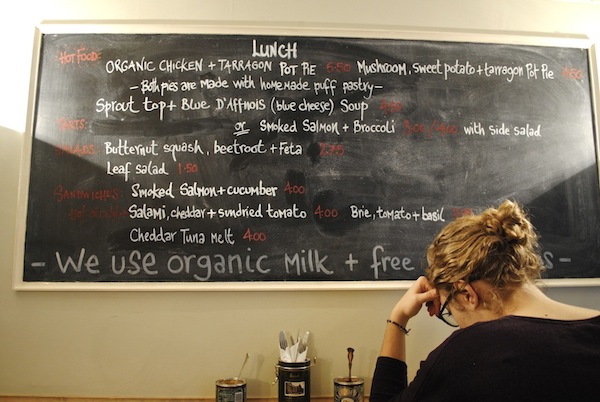 LUNCH
HOT FOOD: ORGANIC CHICKEN + TARRAGON POT PIE 5.50 MUSHROOM, SWEET POTATO + TARRAGON POT PIE
- BOTH PIES ARE MADE WITH HOMEMADE PUFF PASTRY -
SPROUT TOP + BLUE D'AFFNOIS (BLUE CHEESE) SOUP
TARTS: or SMOKED SALMON + BROCCOLI WITH SIDE SALAD
SALADS: BUTTERNUT SQUASH, BEETROOT + FETA 2.75
LEAF SALAD 1.50
SANDWICHES: SMOKED SALMON + CUCUMBER 4.00
SALAMI, CHEDDAR + SUNDRIED TOMATO 4.00 BRIE, TOMATO + BASIL
CHEDDAR TUNA MELT 4.00
- WE USE ORGANIC MILK + FREE